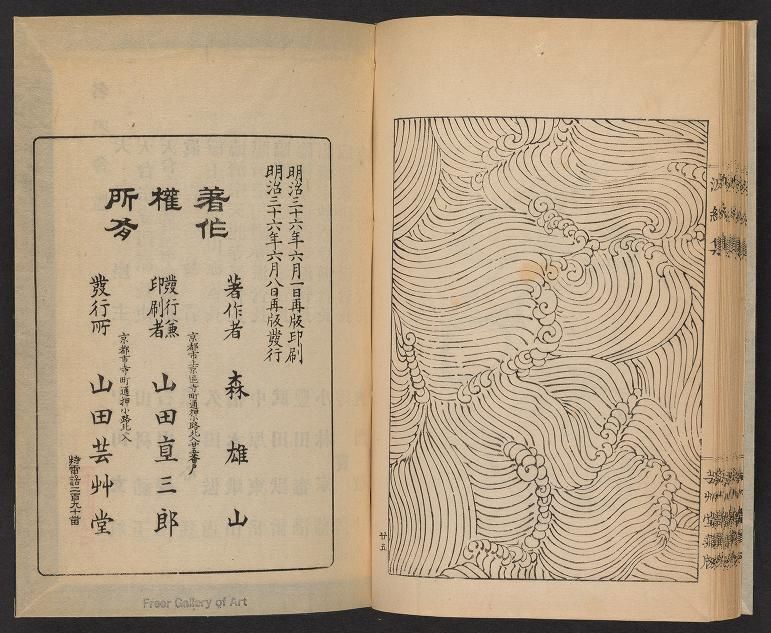 波紋集
芸艸堂藏版
廿五
明治三十六年六月一日再版印刷
明治三十六年六月八日再版發行
著作
權
所有
著作者 森雄山
京都市上京區寺町通押小路北入廿三番戸
發行兼
印刷者 山田直三郎
京都市寺町通押小路北入
發行所 山田芸艸堂
特電話二百九十番
Freer Gallery of Art